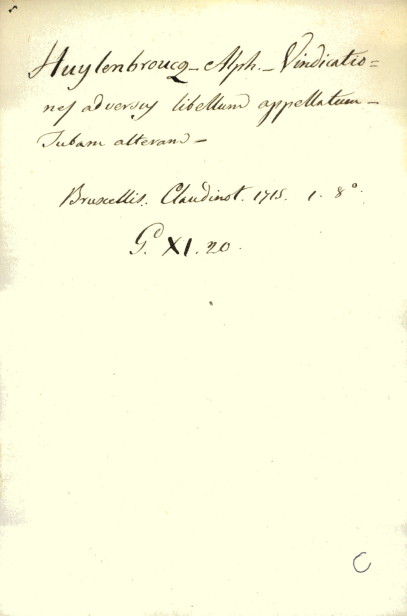 Huylenbroucq - Alph. - Vindicatio=
nes adversus libellum appellatum -
Tubam alteram -
Bruxellis. Claudinot. 1715. 1. 8°.
G. XI. 20.
C